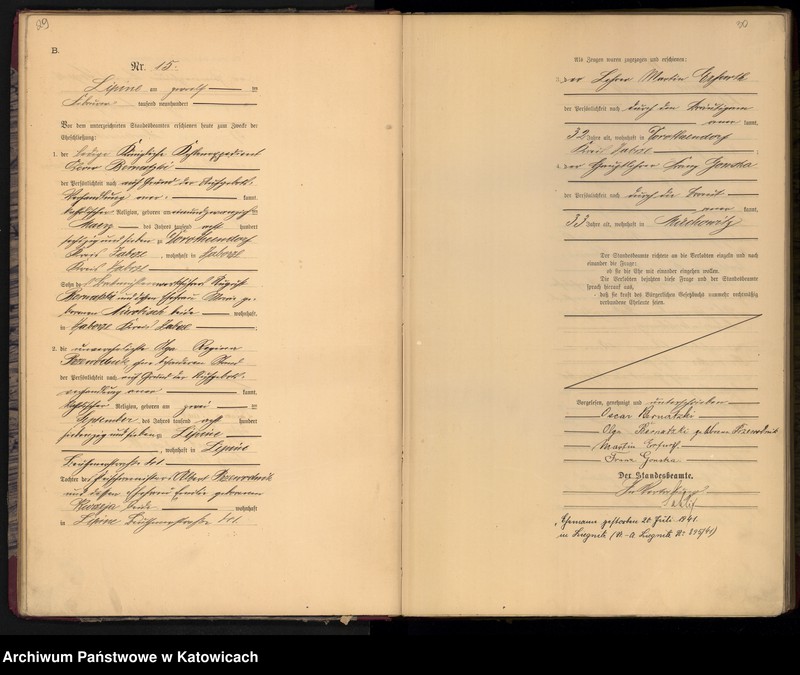 29
B.
Nr. 15.
Lipine am zwölften
Februar tausend neunhundert
Vor dem unterzeichneten Standesbeamten erschienen heute zum Zwecke der
Eheschließung:
1. der ledige Königliche
Oscar Bernatzki
der Persönlichkeit nach auf Grund der Aufgebots-
Verhandlung aner kannt,
katholischer Religion, geboren am einundzwanzigsten
Maerz des Jahres tausend acht hundert
sechzig und sieben zu Dorotheendorf
Kreis Zabrze, wohnhaft in Zaborze
Kreis Zabrze
Sohn des August
Bernatzki und dessen Ehefrau Marie ge-
borenen beide wohnhaft
in Zaborze Kreis Zabrze
2. die unverehelichte Olga Regina
Przewodnik, ohne besonderen Stand
der Persönlichkeit nach auf Grund der Aufgebots-
verhandlung aner kannt,
katholischer Religion, geboren am zwei
September des Jahres tausend acht hundert
siebenzig und sieben zu Lipine
, wohnhaft in Lipine
Tochter des Albert Przewodnik
und dessen Ehefrau Emilie geborenen
beide wohnhaft
in Lipine
30
Als Zeugen waren zugezogen und erschienen:
3. der Lehrer Martin
der Persönlichkeit nach durch den Bräutigam
aner kannt,
32 Jahre alt, wohnhaft in Dorotheendorf
Kreis Zabrze
4. der Hauptlehrer Franz
der Persönlichkeit nach durch die Braut
aner kannt,
33 Jahre alt, wohnhaft in Miechowitz
Der Standesbeamte richtete an die Verlobten einzeln und nach
einander die Frage:
ob sie die Ehe mit einander eingehen wollen.
Die Verlobten bejahten diese Frage und der Standesbeamte
sprach hierauf aus,
daß sie kraft des Bürgerlichen Gesetzbuchs nunmehr rechtmäßig
verbundene Eheleute seien.
Vorgelesen, genehmigt und unterschrieben
Oscar Bernatzki
Olga Bernatzki geborene Przewodnik
Martin
Franz
Der Standesbeamte.
In Vertretung
Ehemann gestorben 20 Juli 1941
in Liegnitz (St.-A Liegnitz Nr 895/41)
Archiwum Państwowe w Katowicach